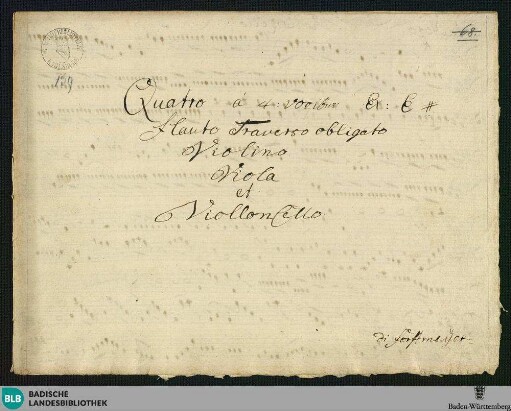 68.
179
Quatro á 4: Vocibus Ex: E #
Flauto Traverso obligato
Violino
Viola
et
Violloncello.
Di
BLB BADISCHE
LANDESBIBLIOTHEK
Baden-Württemberg